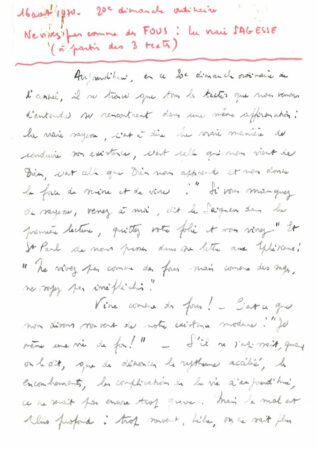 16 août 20e dimanche ordinaire
Ne vivez pas comme des FOUS : la vraie SAGESSE
(à partir des 3 textes)
Aujourd'hui, en ce 20e dimanche ordinaire de
l'année, il se trouve que tous les textes que nous venons
d'entendre se rencontrent dans une même affirmation :
la vraie sagesse, c'est à dire la vraie manière de
conduire son existence, c'est celle qui nous vient de
Dieu, c'est celle que Dieu nous apprend et nous donne
la force de suivre et de vivre : "Si vous manquez
de sagesse, venez à moi, dit le Seigneur dans la
première lecture, quittez votre folie et vous vivrez" Et
St Paul de nous dans sa lettre aux Ephésiens :
"Ne vivez pas comme des fous mais comme des sages,
ne soyez pas irréfléchis."
Vivre comme des fous ! - C'est ce que
nous disons souvent de notre existence moderne : "Je
mène une vie de fou !" - S'il ne s'agissait, quand
on le dit, que de dénoncer le rythme accéléré, les
encombrements, les complications de la vie d'aujourd'hui,
ce ne serait pas encore trop grave. Mais le mal est
plus profond : trop souvent, hélas, on ne sait plus